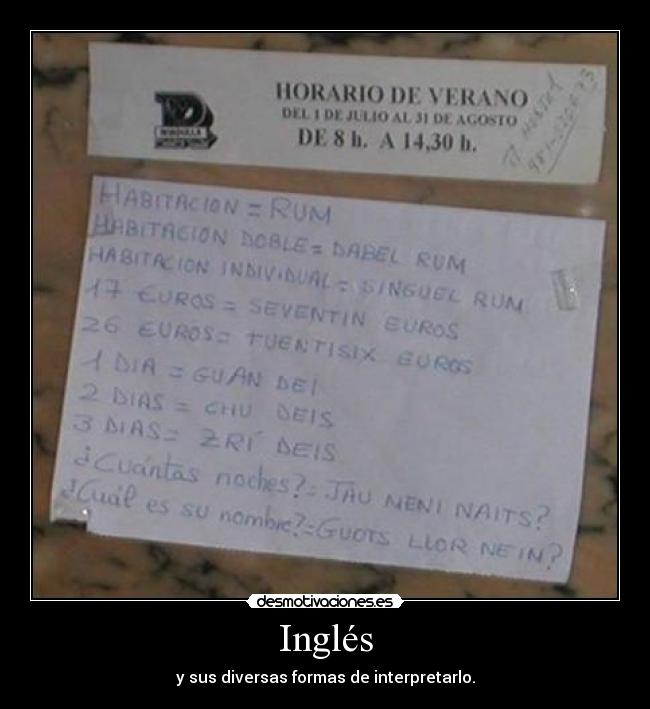 HORARIO DE VERANO
DEL 1 DE JULIO AL 31 DE AGOSTO
DE 8 h. A 14,30 h.
HABITACION = RUM
HABITACION DOBLE = DABEL RUM
HABITACION INDIVIDUAL = SINGUEL RUM
17 EUROS = SEVENTIN EUROS
26 EUROS = TUENTISIX EUROS
1 DIA = GUAN DEI
2 DIAS = CHU DEIS
3 DIAS = ZRÍ DEIS
¿Cuántas noches? = JAU MENI NAITS?
¿Cuál es su nombre? = GUOTS LLOR NEIM?
desmotivaciones.es
Inglés
y sus diversas formas de interpretarlo.